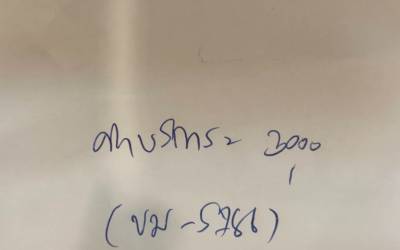 ค่าบริการ = 3000
(ขม - 5786)